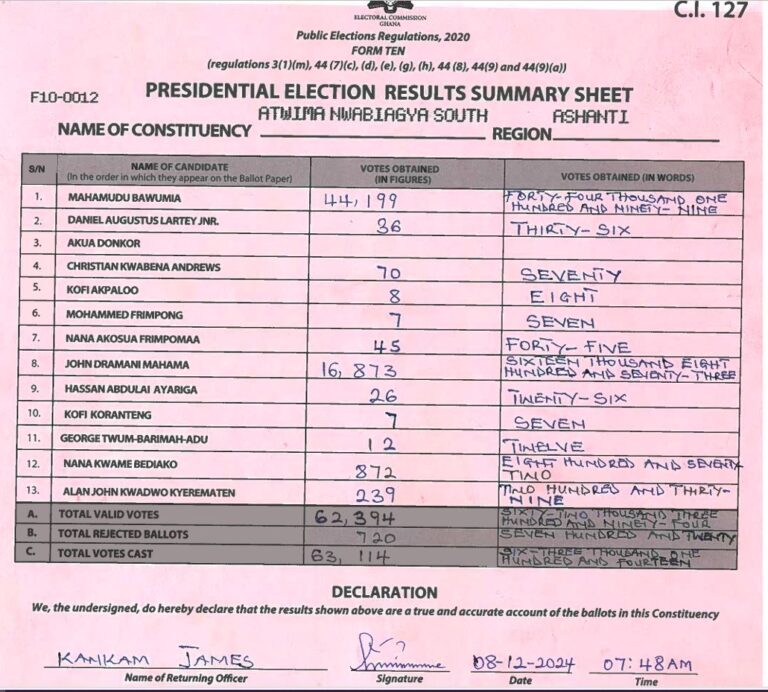 C.I. 127
ELECTORAL COMMISSION
GHANA
Public Elections Regulations, 2020
FORM TEN
(regulations 3(1)(m), 44 (7)(c), (d), (e), (g), (h), 44 (8), 44(9) and 44(9)(a))
F10-0012
PRESIDENTIAL ELECTION RESULTS SUMMARY SHEET
NAME OF CONSTITUENCY ATWIMA NWABIAGYA SOUTH REGION ASHANTI
S/N NAME OF CANDIDATE (In the order in which they appear on the Ballot Paper) VOTES OBTAINED (IN FIGURES) VOTES OBTAINED (IN WORDS)
1. MAHAMUDU BAWUMIA 44,199 FORTY-FOUR THOUSAND ONE HUNDRED AND NINETY-NINE
2. DANIEL AUGUSTUS LARTEY JNR. 36 THIRTY-SIX
3. AKUA DONKOR
4. CHRISTIAN KWABENA ANDREWS 70 SEVENTY
5. KOFI AKPALOO 8 EIGHT
6. MOHAMMED FRIMPONG 7 SEVEN
7. NANA AKOSUA FRIMPOMAA 45 FORTY-FIVE
8. JOHN DRAMANI MAHAMA 16,873 SIXTEEN THOUSAND EIGHT HUNDRED AND SEVENTY-THREE
9. HASSAN ABDULAI AYARIGA 26 TWENTY-SIX
10. KOFI KORANTENG 7 SEVEN
11. GEORGE TWUM-BARIMAH-ADU 12 TWELVE
12. NANA KWAME BEDIAKO 872 EIGHT HUNDRED AND SEVENTY TWO
13. ALAN JOHN KWADWO KYEREMATEN 239 TWO HUNDRED AND THIRTY-NINE
A. TOTAL VALID VOTES 62,394 SIXTY-TWO THOUSAND THREE HUNDRED AND NINETY-FOUR
B. TOTAL REJECTED BALLOTS 720 SEVEN HUNDRED AND TWENTY
C. TOTAL VOTES CAST 63,114 SIX-THREE THOUSAND ONE HUNDRED AND FOURTEEN
DECLARATION
We, the undersigned, do hereby declare that the results shown above are a true and accurate account of the ballots in this Constituency
KANKAM JAMES 08-12-2024 07:48AM
Name of Returning Officer Signature Date Time